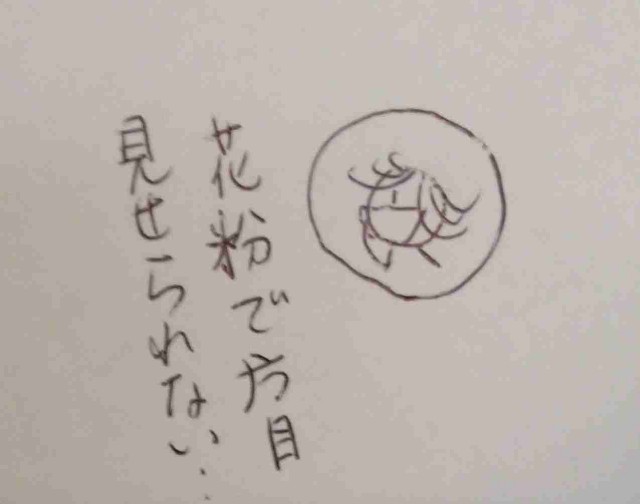 花粉で方目
見せられない.